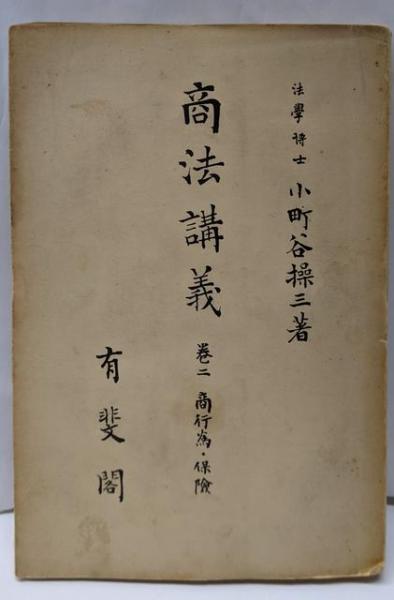 法學博士 小町谷操三著
商法講義 卷二 商行爲・保險
有斐閣